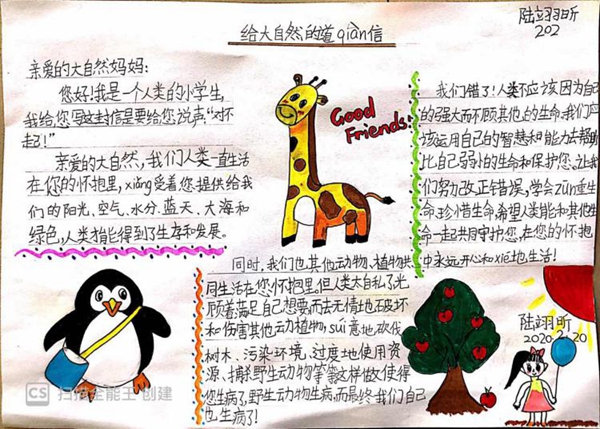 给大自然的道qiàn信
陆翊昕
202
亲爱的大自然妈妈:
您好!我是一个人类的小学生,
我给您写这封信是要给您说声“对不
起了!”
亲爱的大自然,我们人类一直生活
在您的怀抱里,xiǎng受着您提供给我
们的阳光、空气、水分、蓝天、大海和
绿色,人类才能得到了生存和发展。
Good
Friends!
同时,我们也其他动物、植物共
同生活在您怀抱里,但人类太自私了,光
顾着满足自己想要而去无情地破坏
和伤害其他动植物,suí意地砍伐
树木、污染环境、过度地使用资
源、捕杀野生动物等等,这样做使得
您生病了,野生动物生病,而最终我们自己
也生病了!
我们错了!人类不应该因为自己
的强大而不顾其他的生命,我们应
该运用自己的智慧和能力去帮助
比自己弱小的生命和保护您,让我
们努力改正错误,学会zūn重生
命,珍惜生命,希望人类能和其他生
命一起共同守护您,在您的怀抱
中永远开心和xié地生活!
陆翊昕
2020.2.20
CS 扫描全能王 创建